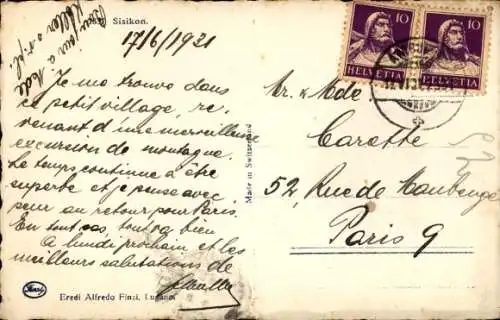 Sisikon.
17/6/1931
Bonjour à Mde
Je me trouve dans
ce petit village, re-
venant d'une merveilleuse
excursion de montagne.
Le temps continue à être
superbe et je pense avec
peur au retour pour Paris.
En tout cas, tout va bien
A lundi prochain et les
meilleurs salutations de
Eredi Alfredo Finzi, Lugano.
Made in Switzerland
10 10
HELVETIA HELVETIA
Mr. & Mde
Carette
52, Rue de Maubeuge
Paris 9